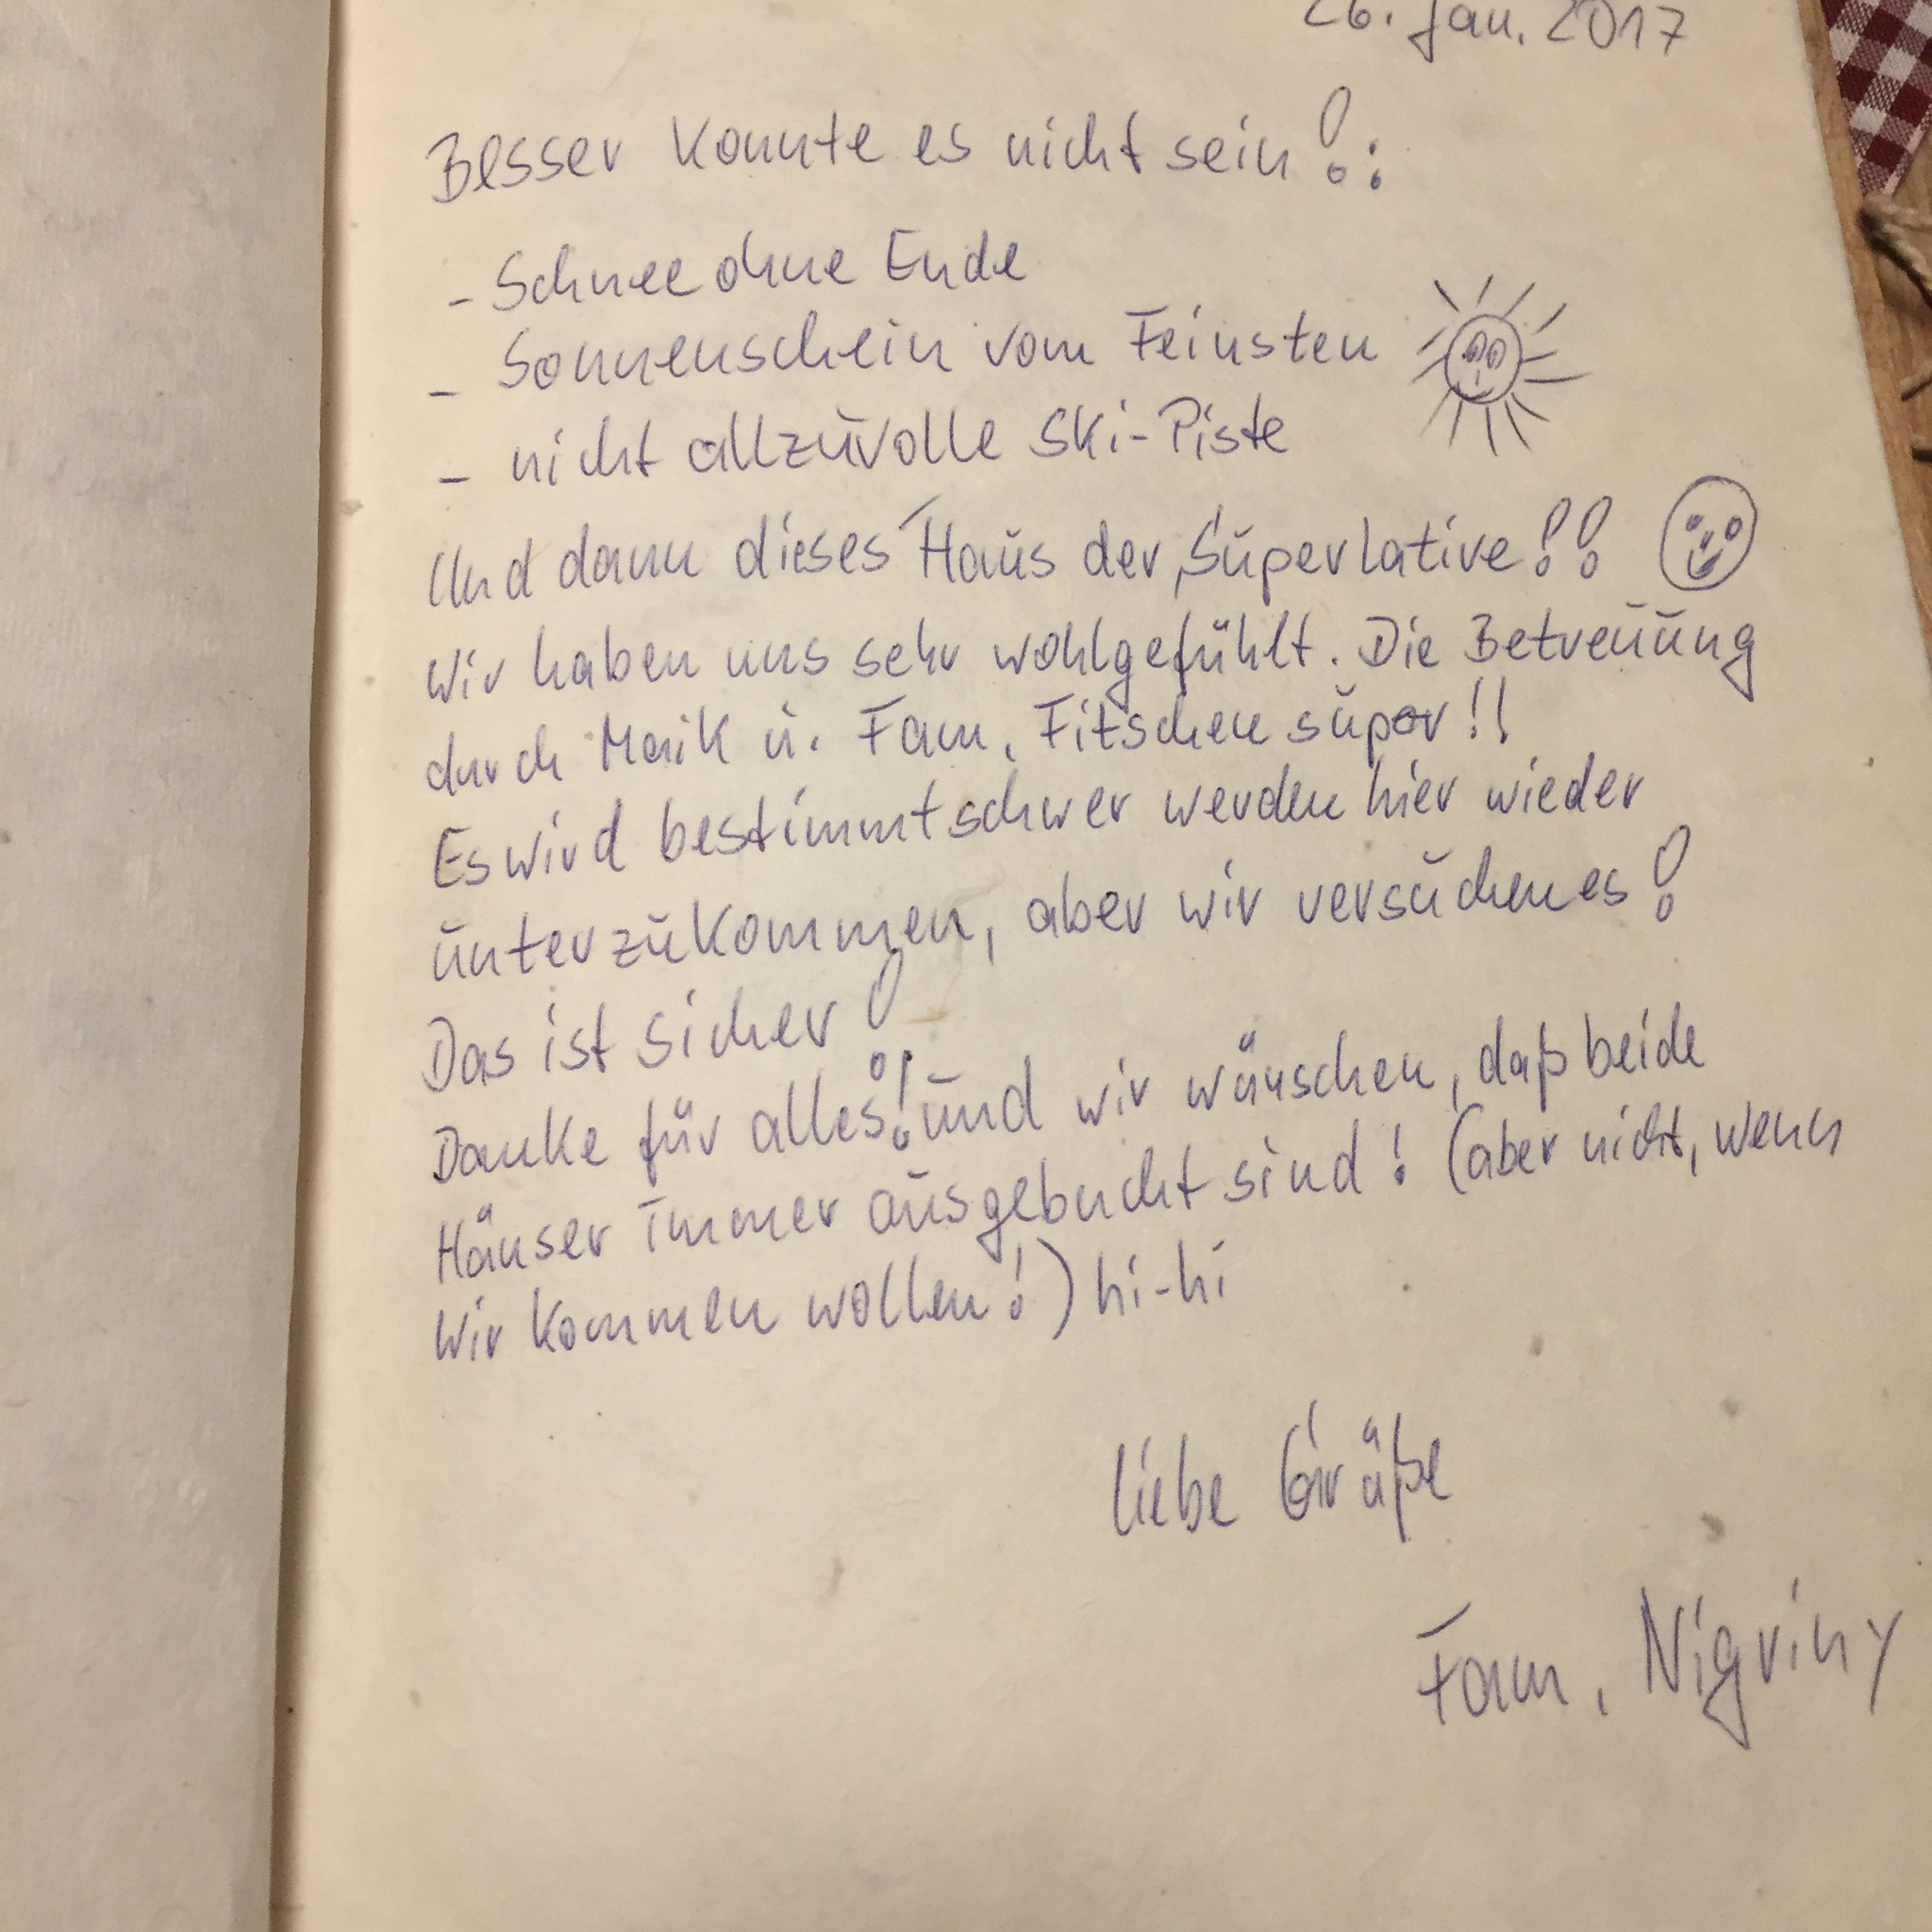 26. Jan. 2017
Besser konnte es nicht sein!:
- Schnee ohne Ende
- Sonnenschein vom Feinsten
- nicht allzuvolle Ski-Piste
Und dann dieses Haus der Superlative!!
Wir haben uns sehr wohlgefühlt. Die Betreuung
durch Maik u. Fam. Fitschen super!!
Es wird bestimmt schwer werden hier wieder
unterzukommen, aber wir versuchen es!
Das ist sicher!
Danke für alles! und wir wünschen, daß beide
Häuser immer ausgebucht sind! (aber nicht, wenn
wir kommen wollen!) hi-hi
liebe Grüße
Fam. Nigriny